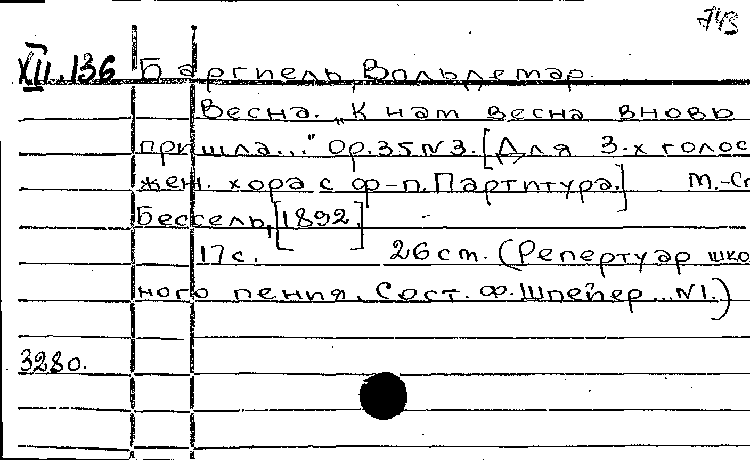 743
XII.136 Баргиель, Вольдемар.
Весна. „К нам весна вновь
пришла..." Op.35 N3. [Для 3-х голос
жен. хора с ф-п. Партитура.] М.-Сп
Бессель, [1892.]
17 с. 26 cm. (Репертуар шко
ного пения. Сост. Ф. Шпейер... N1.)
3280.